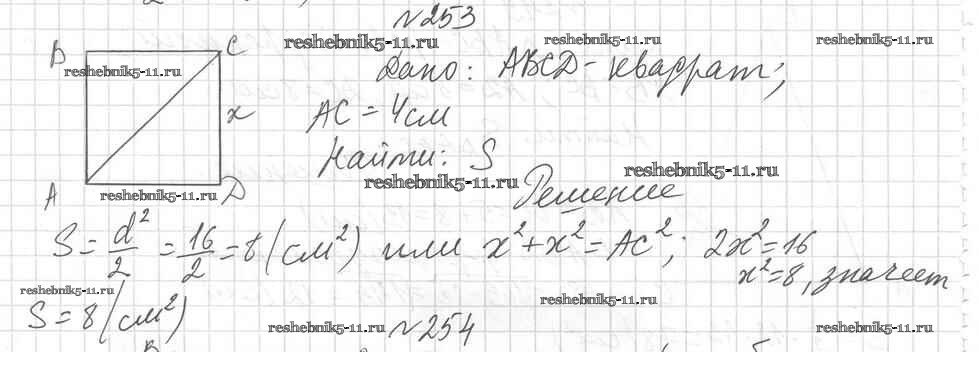 №253
reshebnik5-11.ru
reshebnik5-11.ru
reshebnik5-11.ru
B C
reshebnik5-11.ru
Дано: ABCD - квадрат;
x
AC = 4см
Найти: S
reshebnik5-11.ru
reshebnik5-11.ru
A D
reshebnik5-11.ru
Решение
S = d²/2 = 16/2 = 8 (см²) или x² + x² = AC²; 2x² = 16
x² = 8, значет
reshebnik5-11.ru
S = 8 (см²)
reshebnik5-11.ru
reshebnik5-11.ru
№254
reshebnik5-11.ru